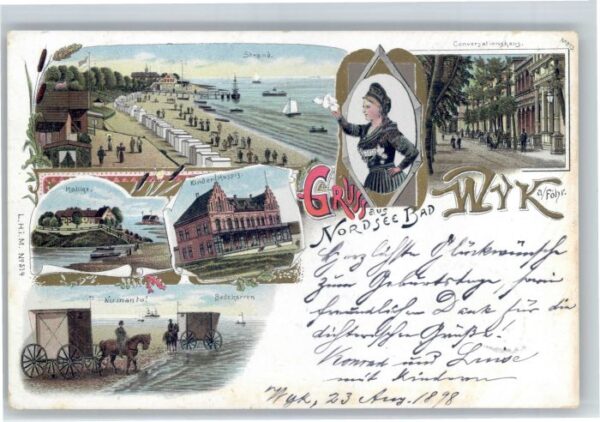 Strand.
Conversationshaus.
Hallig.
Kinderhospiz
GRUSS aus
NORDSEE BAD
WYK a/Föhr.
L.H.i.M. No 214
"Normannia"
Badekarren
Herzlichste Glückwünsche
zum Geburtstage, sowie
freundlichen Dank für die
dichterischen Grüße!
Konrad und Luise
mit Kindern
Wyk, 23 Aug. 1898